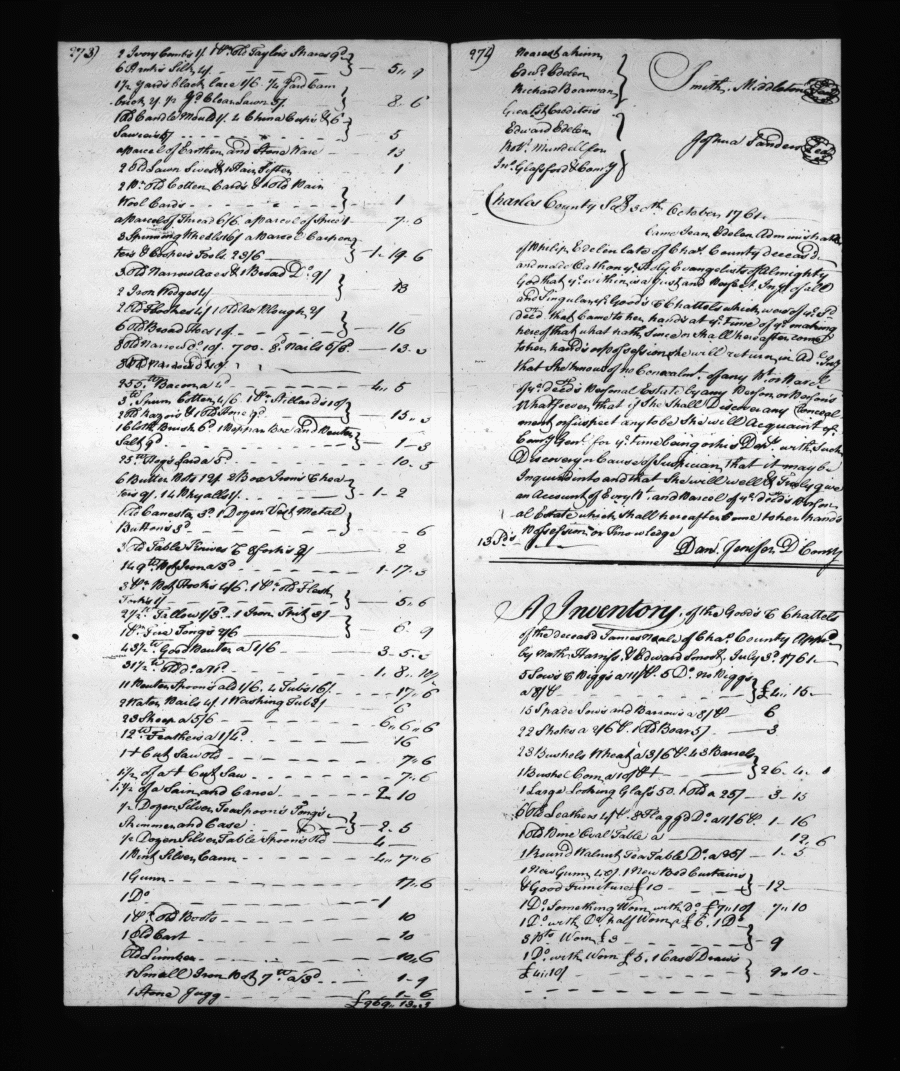 273)
2 Ivory Combs 1/. 1 Pr. Old Taylors Shears 9d
6 Sticks Silk 4/ - 5 „ 9
1 1/2 yards black lace 1/6. 1/4 Yard Cam
brick 2/. 1/2 Yd Clear Lawn 5/. 8 - 6
1 Old Candle Mould 1/. 4 China Cups & 6
Sawcers 5/ - 5
a parcel of Earthen and Stone Ware - 13
2 Old Lawn Sives & 1 Hair Sifter 1
2 Pr. Old Cotten Cards & 1 Old Pair
Wool Cards - 1
a Parcel of Thread 6/6 a Parcel of 1 - 7 - 6
3 Spinning Wheels 16/ a Parcel Carpen
ters & Coopers Tools 23/6 - 1 - 19 - 6
3 old Narrow Axes & 1 Broad Do. 9/
2 Iron Wedges 4/ 13
2 Old 4/ 1 Old Plough 2/
6 Old Broad Hoes 10/. - 16
8 Old Narrow do. 10/. 700. 8d Nails 5/8. - 13 - 3
255 lb Bacon a 4d - 4 „ 5
3 lb Spun Cotten 4/6. 1 Pr. Stilliards 10/
2 Old Razors & 1 Old Hone 9d - 15 „ 3
1 Cloth Brush 6d 1 Box and Pewter
Salt 9d - 1 - 3
25 lb Hogs Lard a 5d - 10 - 5
6 Butter Pots 12/ 2 Box Irons & Hea
ters 9/. 14 Phyalls 1/ - 1 - 2
1 Tea Canester 3d 1 Dozen Vest Mettal
Buttons 3d - 6
3 Old Table Knives & 8 forks 2/ 2
149 lb Pot Iron a 3d 1 - 17 - 3
3 Pr. Pot Hooks 4/6. 1 Pr. old Flesh
Forks 1/ - 5 „ 6
27 1/2 lb Tallow 1/3d. 1 Iron Spit 3/
1 Pr. Fire Tongs 2/6 - 6 - 9
43 1/2 lb Good Pewter a 1/6 3 - 5 - 3
31 1/2 lb old do. a 1. 8. 10 1/2
11 Pewter Spoons old 1/6. 4 Tubs 16/. 17 - 6
2 Water Pails 4/. 1 Washing Tub 2/ 6
23 Sheep a 5/6 6 „ 6 „ 6
12 lb Feathers a 1/6d 16
1 + Cut Saw Old 7 „ 6
1/2 of a + Cut Saw 7 - 6
1/2 of a Sain and Canoe 2 10
1/2 Dozen Silver Tea Spoons Tongs
Strainer and Case - 2 - 5
1/2 Dozen Silver Table Spoons Old 4
1 Pint Silver Cann 4 „ 7 „ 6
1 Gunn 17 - 6
1 Do 1
1 Pr. Old Boots 10
1 Old Cart 20
Old Lumber 10 „ 6
1 Small Iron Pot 7 lb a 3d 1 - 9
1 Stone Jugg 1 - 6
£969 „ 13 „ 3
274)
Nearest akinn
Edwd. Edelen
Richard Boarman
Greatest Creditors
Edward Edelen
Robt. Mundell for
Jno. Glassford & Compy
Smith. Middleton Seal
Joshua Sanders Seal
Charles County Sct. 30th October 1761
Came Jean Edelen Administratrix
of Philip Edelen late of Chas. County deceased
and made Oath on ye. Holy Evangelists of Almighty
God that ye. within is a Just and Perfect Invy. of all
and Singular ye. Goods & Chattels which were of ye. Sd.
deced. that Came to her hands at ye. time of ye. making
hereof that what hath since or shall hereafter come
to her hands or possession she will return in Ad. Invy
that She knows of no Concealmt. of any Pt. or Parcel
of ye. deceds Personal Estate by any Person or Persons
Whatsoever, that if She Shall Discover any Conceal
ment or suspect any to be She will Acquaint ye.
Comy. Genl. for ye. time being or his Depy. with Such
Discovery or Cause of Suspicion, that it may be
Inquired into and that She will well & Truly give
an Account of Every Pt. and Parcel of ye. deceds Person
al Estate which Shall hereafter Come to her hands
Possession or Knowledge
13 Sds Danl. Jenifer D Comty
A Inventory, of the Goods & Chattels
of the deceased James Neale of Chas. County Apprd.
by Nathl. Harris, & Edward Smoot, July 3d. 1761
5 Sows & Piggs a 11/ P. 5 Do. no Piggs
a 8/ P £4 „ 15 -
15 Spade Sows and Barrows a 8/ P 6
22 Shotes a 2/6 P. 1 Old Boar 5/ 3
23 Bushels Wheat a 3/6 P. 43 Barrels
1 Bushel Corn a 10/ P - 26 . 4 . 0
1 Large Looking Glass 50. 1 Old a 25/ 3 - 15
6 Old Leathers 4/ P. 8 Flaggd Do. a 1/6 P. 1 - 16
1 Old Pine Oval Table a 12 „ 6
1 Round Walnut Tea Table Do. a 25/ 1 - 5
1 New Gunn 40/. 1 New Bed Curtains
& Good Furniture £10 - 12 -
1 Do. Something Worn with do. £7 „ 10/ 7 „ 10
1 Do. with Do. half Worn a £6. 1 Do
3 Worn £3 9
1 Do. with Worn £5. 1 Case Draws
£4 „ 10/ 9 „ 10 -